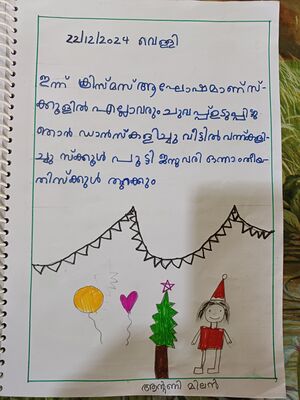 22/12/2024 വെള്ളി
ഇന്ന് ക്രിസ്മസ് ആഘോഷമാണ് സ്
ക്കൂളിൽ എല്ലാവരും ചുവപ്പ് ഉടുപ്പിട്ടു
ഞാൻ ഡാൻസ് കളിച്ചു വീട്ടിൽ വന്ന് കളി
ച്ചു സ്ക്കൂൾ പൂട്ടി ജനുവരി ഒന്നാം തീയ
തി സ്ക്കൂൾ തുറക്കും
ആന്റണി മിലൻ